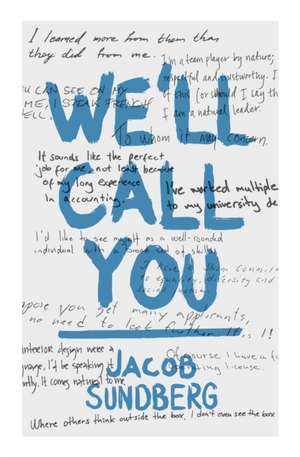 I learned more from them than
they did from me.
I'm a team player by nature;
respectful and trustworthy. I
if this (or should I say th
I am a natural leader.
U CAN SEE ON MY
ME, I SPEAK FRENCH
ELL.
WE'LL
To whom it may concern.
It sounds like the perfect
job for me, not least because
of my long experience
In accounting.
I've worked multiple
to my university de
CALL
I'd like to see myself as a well-rounded
individual with a broad set of skills
YOU
pose you get many applicants,
no need to look further
interior design were a
nguage, I'd be speaking it
ntly. It comes natural to me
Of course I have a
license.
JACOB
SUNDBERG
Where others think outside the box, I don't even see the box